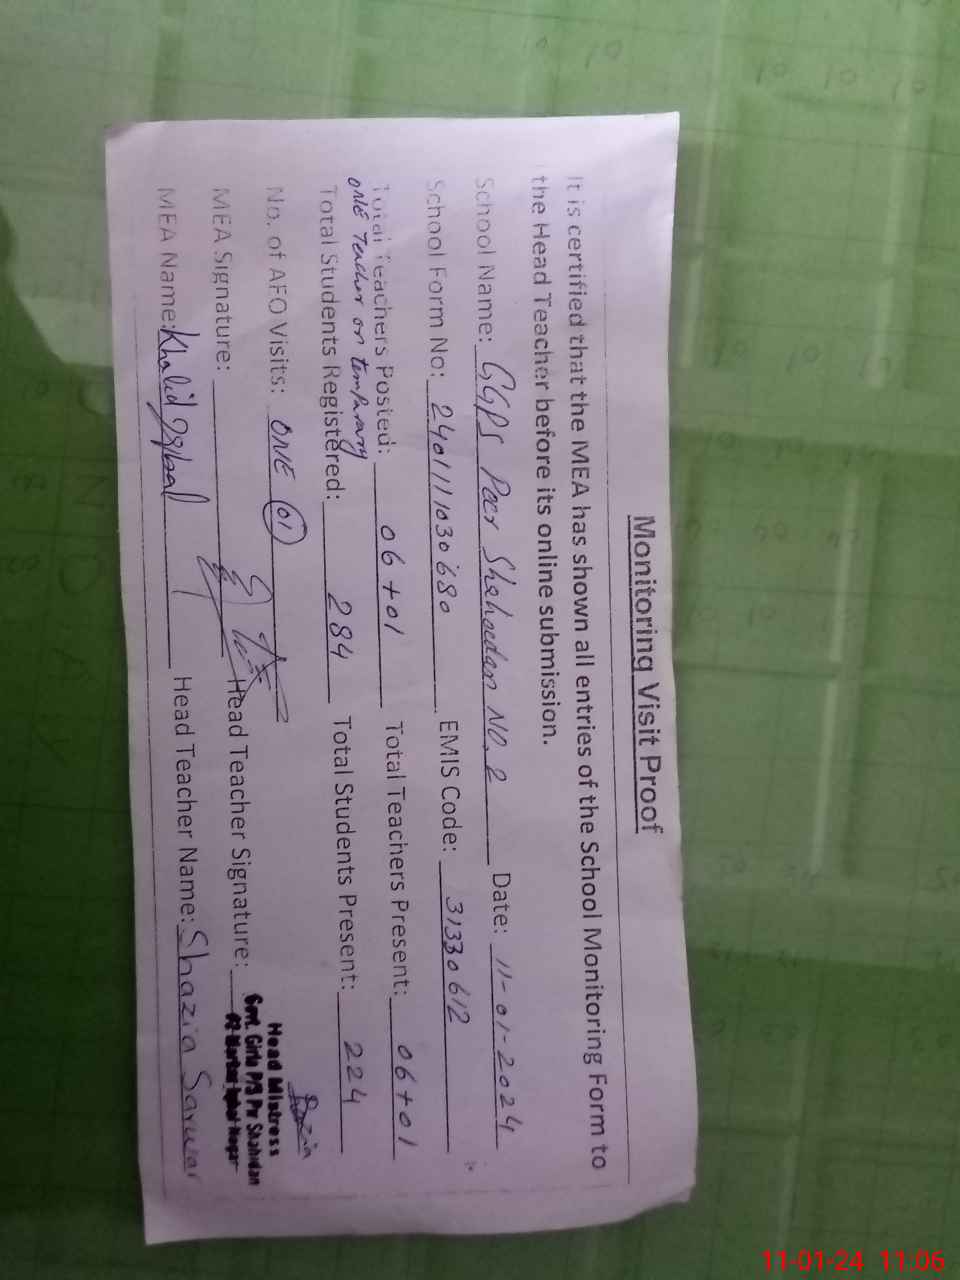 Monitoring Visit Proof
It is certified that the MEA has shown all entries of the School Monitoring Form to
the Head Teacher before its online submission.
School Name: GGPS Peer Shahodan NO. 2 Date: 11-01-2024
School Form No: 2401111030680 EMIS Code: 31330612
Total Teachers Posted: 06+01 Total Teachers Present: 06+01
ONE Teacher on temparary
Total Students Registered: 284 Total Students Present: 224
No. of AEO Visits: ONE 01
MEA Signature: Head Teacher Signature:
Head Mistress
Gmt. Girls P/S Pir Shahidan
MEA Name: Khalid Iqbal Head Teacher Name: Shazia Sarwar
11-01-24 11:06